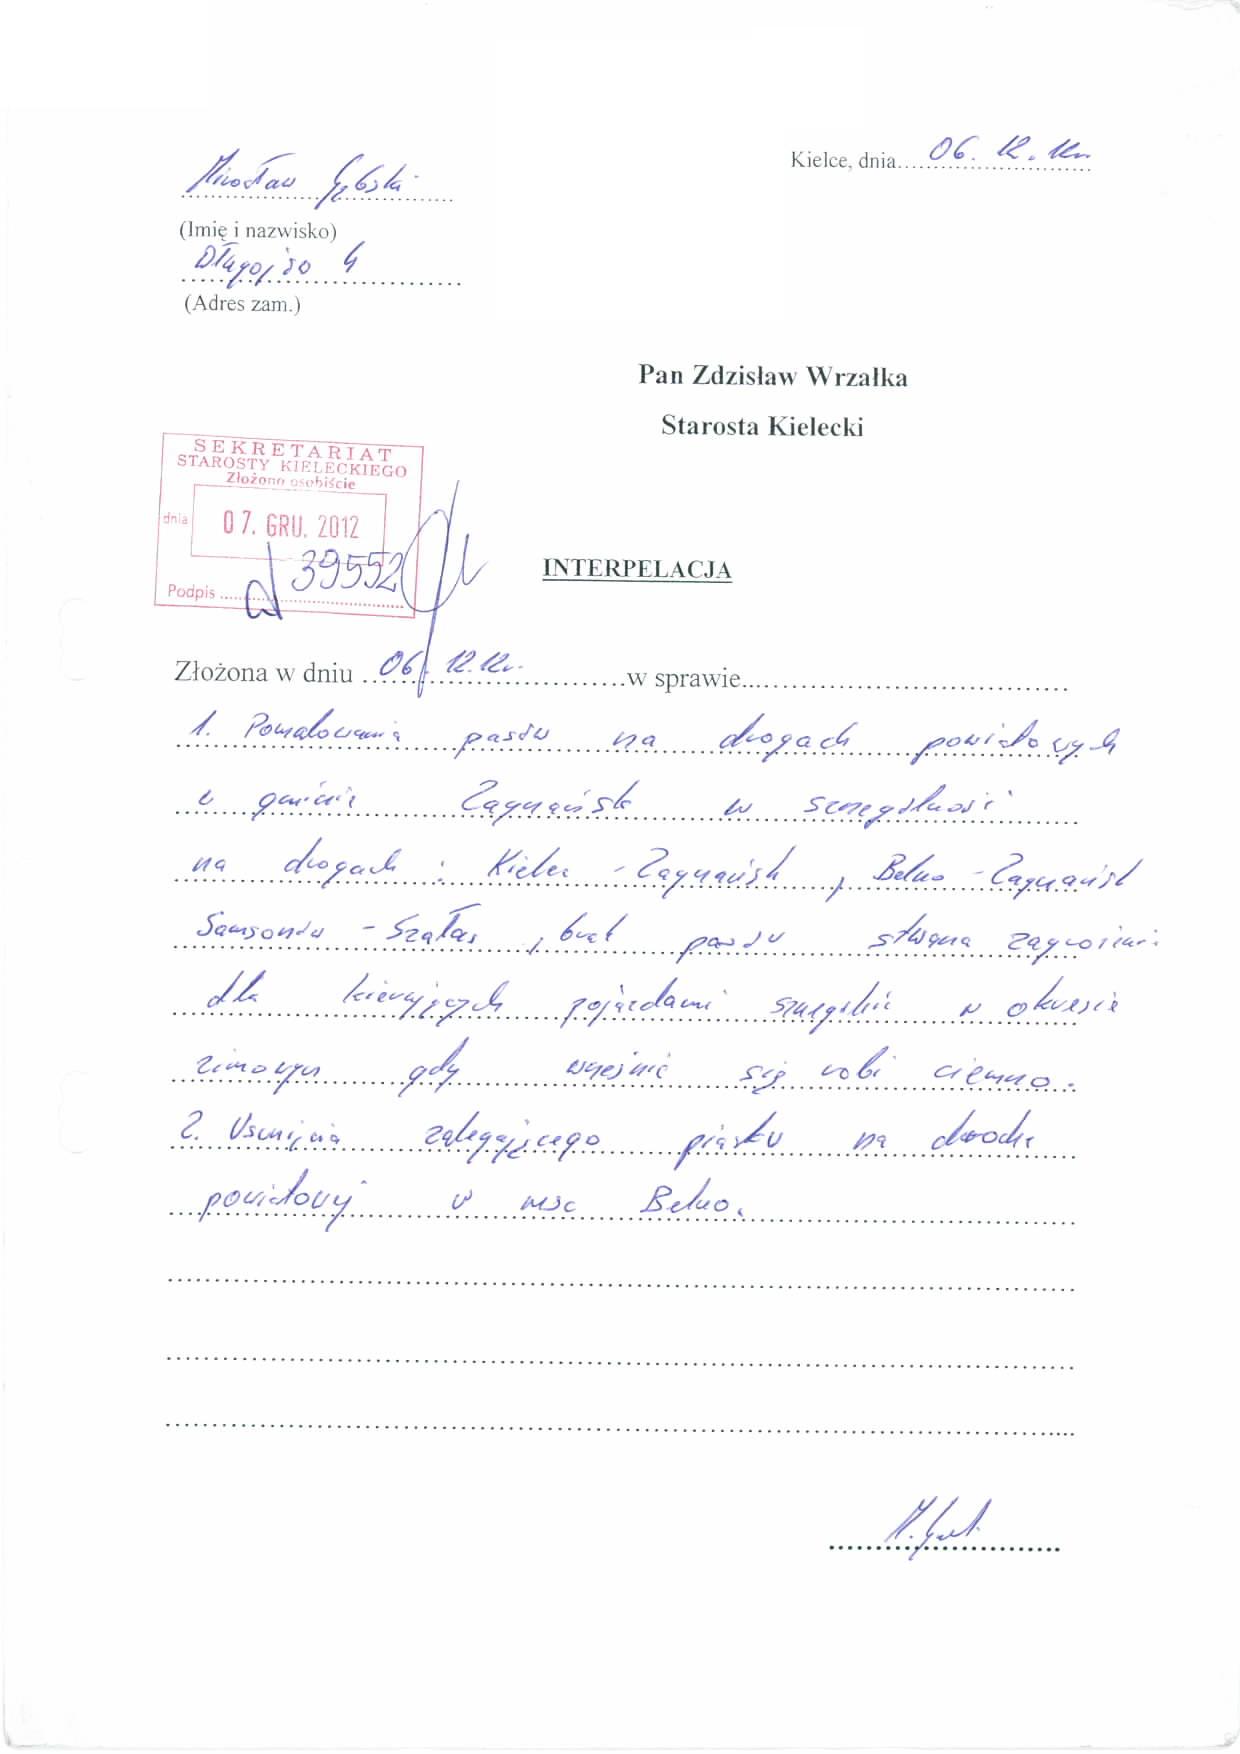 Kielce, dnia 06.12.12r.
Mirosław Gębski
(Imię i nazwisko)
Długojów 4
(Adres zam.)
Pan Zdzisław Wrzałka
Starosta Kielecki
SEKRETARIAT
STAROSTY KIELECKIEGO
Złożono osobiście
dnia 07. GRU. 2012
39552
Podpis
INTERPELACJA
Złożona w dniu 06.12.12r. w sprawie
1. Pomalowania pasów na drogach powiatowych
w gminie Zagnańsk w szczególności
na drogach: Kielce - Zagnańsk, Belno - Zagnańsk
Samsonów - Szałas, brak pasów stwarza zagrożenie
dla kierujących pojazdami szczególnie w okresie
zimowym gdy wcześnie się robi ciemno.
2. Usunięcia zalegającego piasku na drodze
powiatowej w msc Belno.